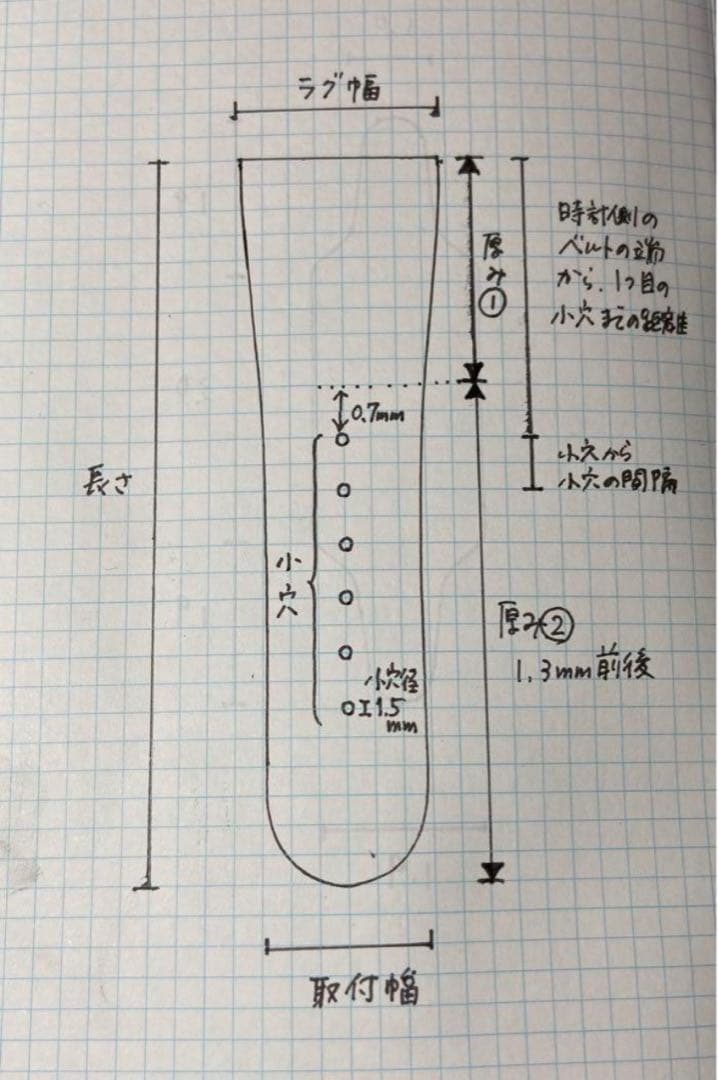 ラグ幅
時計側の
ベルトの立筋
から、1つ目の
小穴までの距離
厚み①
0.7mm
小穴から
小穴の間隔
長さ
小穴
厚み②
1.3mm前後
小穴径
1.5
mm
取付幅